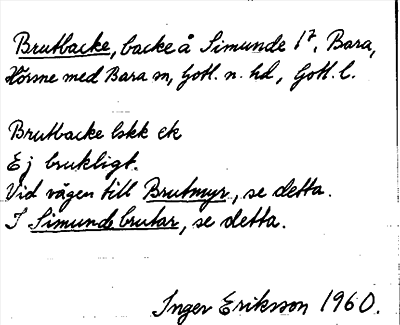 Brutbacke, backe å Simunde 1⁷, Bara,
Hörsne med Bara sn, Gotl. n. hd, Gotl. l.
Brutbacke lskk ek
Ej brukligt.
Vid vägen till Brutmyr, se detta.
I Simunde brutar, se detta.
Inger Eriksson 1960.